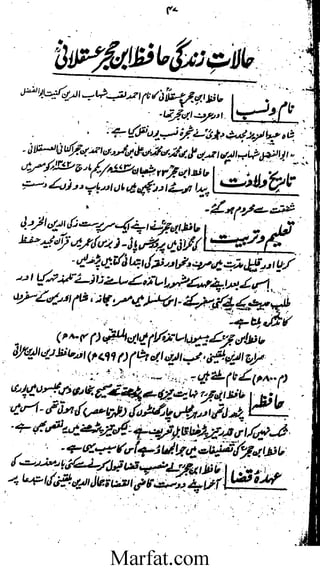 ۴۷
حالاتِ زندگی حافظ ابن حجر عسقلانیؒ
نام و نسب
حافظ ابن حجر عسقلانی کا نام احمد لقب شہاب الدین کنیت ابو الفضل
اور عرف ابن حجر تھا۔
شاہ عبد العزیز محدث دہلوی نے شجرۂ نسب یوں نقل کیا ہے۔
ابو الفضل شہاب الدین احمد بن علی بن محمد بن محمد بن علی بن محمود بن احمد بن حجر کنانی العسقلانی۔
تاریخ ولادت
حافظ ابن حجر ۲۳ شعبان ۷۷۳ھ مارچ ۱۳۷۲ء کو مصر میں
پیدا ہوئے اور بچپن میں ماں اور باپ دونوں کے دستِ
شفقت سے محروم ہو گئے۔
تعلیم و تربیت
حافظ ابن حجر نے اپنے ایک سرپرست زکی الدین الخروبی
کی نگرانی میں پرورش پائی۔ نو برس کی عمر میں قرآن مجید حفظ
کر لیا اور قلیل مدت میں صرف و نحو اور فقہ کی ابتدائی کتابیں پڑھ لیں۔
اس کے بعد اپنے عہد کے مشہور اساتذہ کے سامنے زانوئے تلمذ تہہ کیا اور
طلب حدیث کے لئے کئی سفر کئے۔ اسی سلسلہ میں مصر، حجاز، شام اور یمن کے سفروں
کا تذکرہ ملتا ہے۔
حافظ ابن حجر کے بیسیوں اساتذہ کرام میں ابن الملقن (م ۸۰۴ھ)
سراج الدین بلقینی، محب الدین ابن ہشام (م ۷۹۹ھ) اور حافظ زین الدین عراقی
(م ۸۰۶ھ) کے نام ملتے ہیں۔
حافظہ
حافظ ابن حجر نہایت تیزی سے پڑھتے تھے صحیح بخاری دس مجلسوں میں پوری
پڑھ لی تھی اور ہر مجلس چار گھنٹوں کی (ظہر تا عصر) کی ہوتی تھی۔ اس میں
شک نہیں کہ اس قدر تیز پڑھنا قابل تعریف ہے۔ لیکن تیز پڑھنے میں یہ نقص بھی ہے۔
حافظ ابن حجر کی تصنیفات میں جو الجھاؤ ہے اس کا سبب یہی ہے۔
عہدۂ قضا
حافظ ابن حجر نے منصب قضا قبول کرنے سے کئی بار معذرت کی
آخر اپنے دوست قاضی القضاة جمال الدین بلقینی کی استدعا پر
Marfat.com